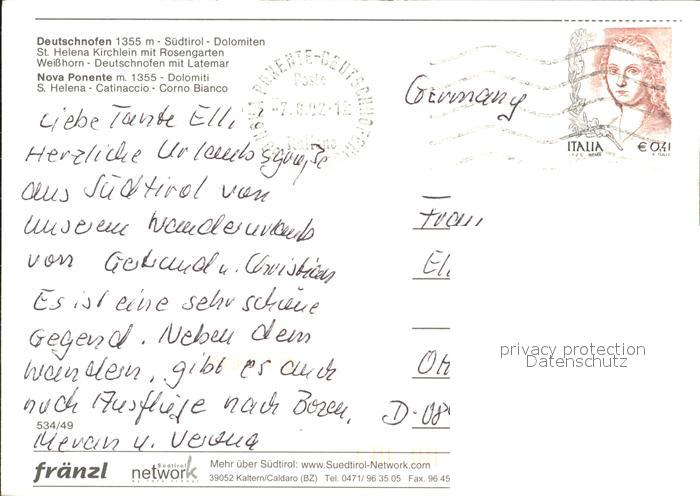 Deutschnofen 1355 m - Südtirol - Dolomiten
St. Helena Kirchlein mit Rosengarten
Weißhorn - Deutschnofen mit Latemar
Nova Ponente m. 1355 - Dolomiti
S. Helena - Catinaccio - Corno Bianco
NOVA PONENTE-DEUTSCHNOFEN
Poste
Italiane
Germany
ITALIA
€ 0,41
Liebe Tante Elli,
Herzliche Urlaubsgrüße
aus Südtirol von
unserem Wanderurlaub
von Gertraud u. Christian
Es ist eine sehr schöne
Gegend. Neben dem
wandern, gibt es auch
noch Ausflüge nach Bozen,
Meran u. Verona
Frau
D-08
privacy protection
Datenschutz
534/49
fränzl
Südtirol
network
Mehr über Südtirol: www.Suedtirol-Network.com
39052 Kaltern/Caldaro (BZ) Tel. 0471/ 96 35 05 Fax. 96 45